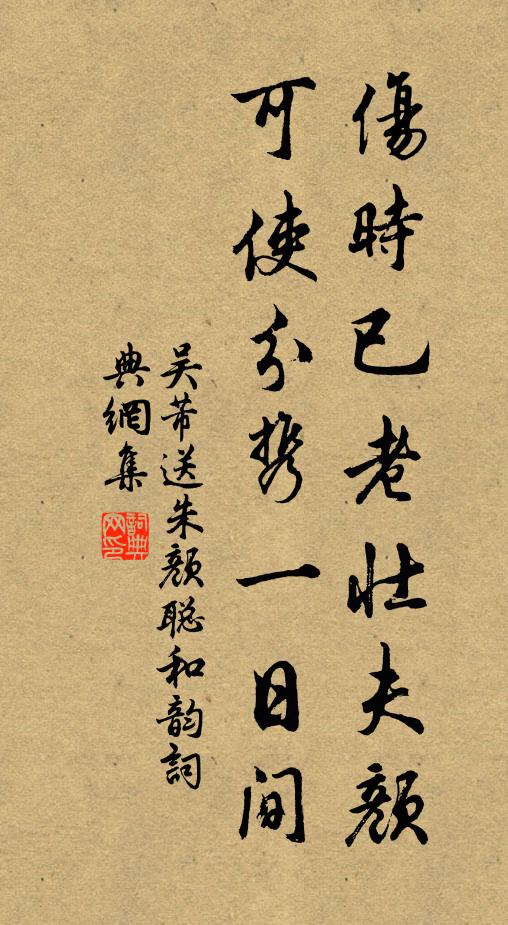 傷時已老壯夫顏
可使分攜一日間
吴芾送朱顏聪和韵詞
典網集
詞典网印